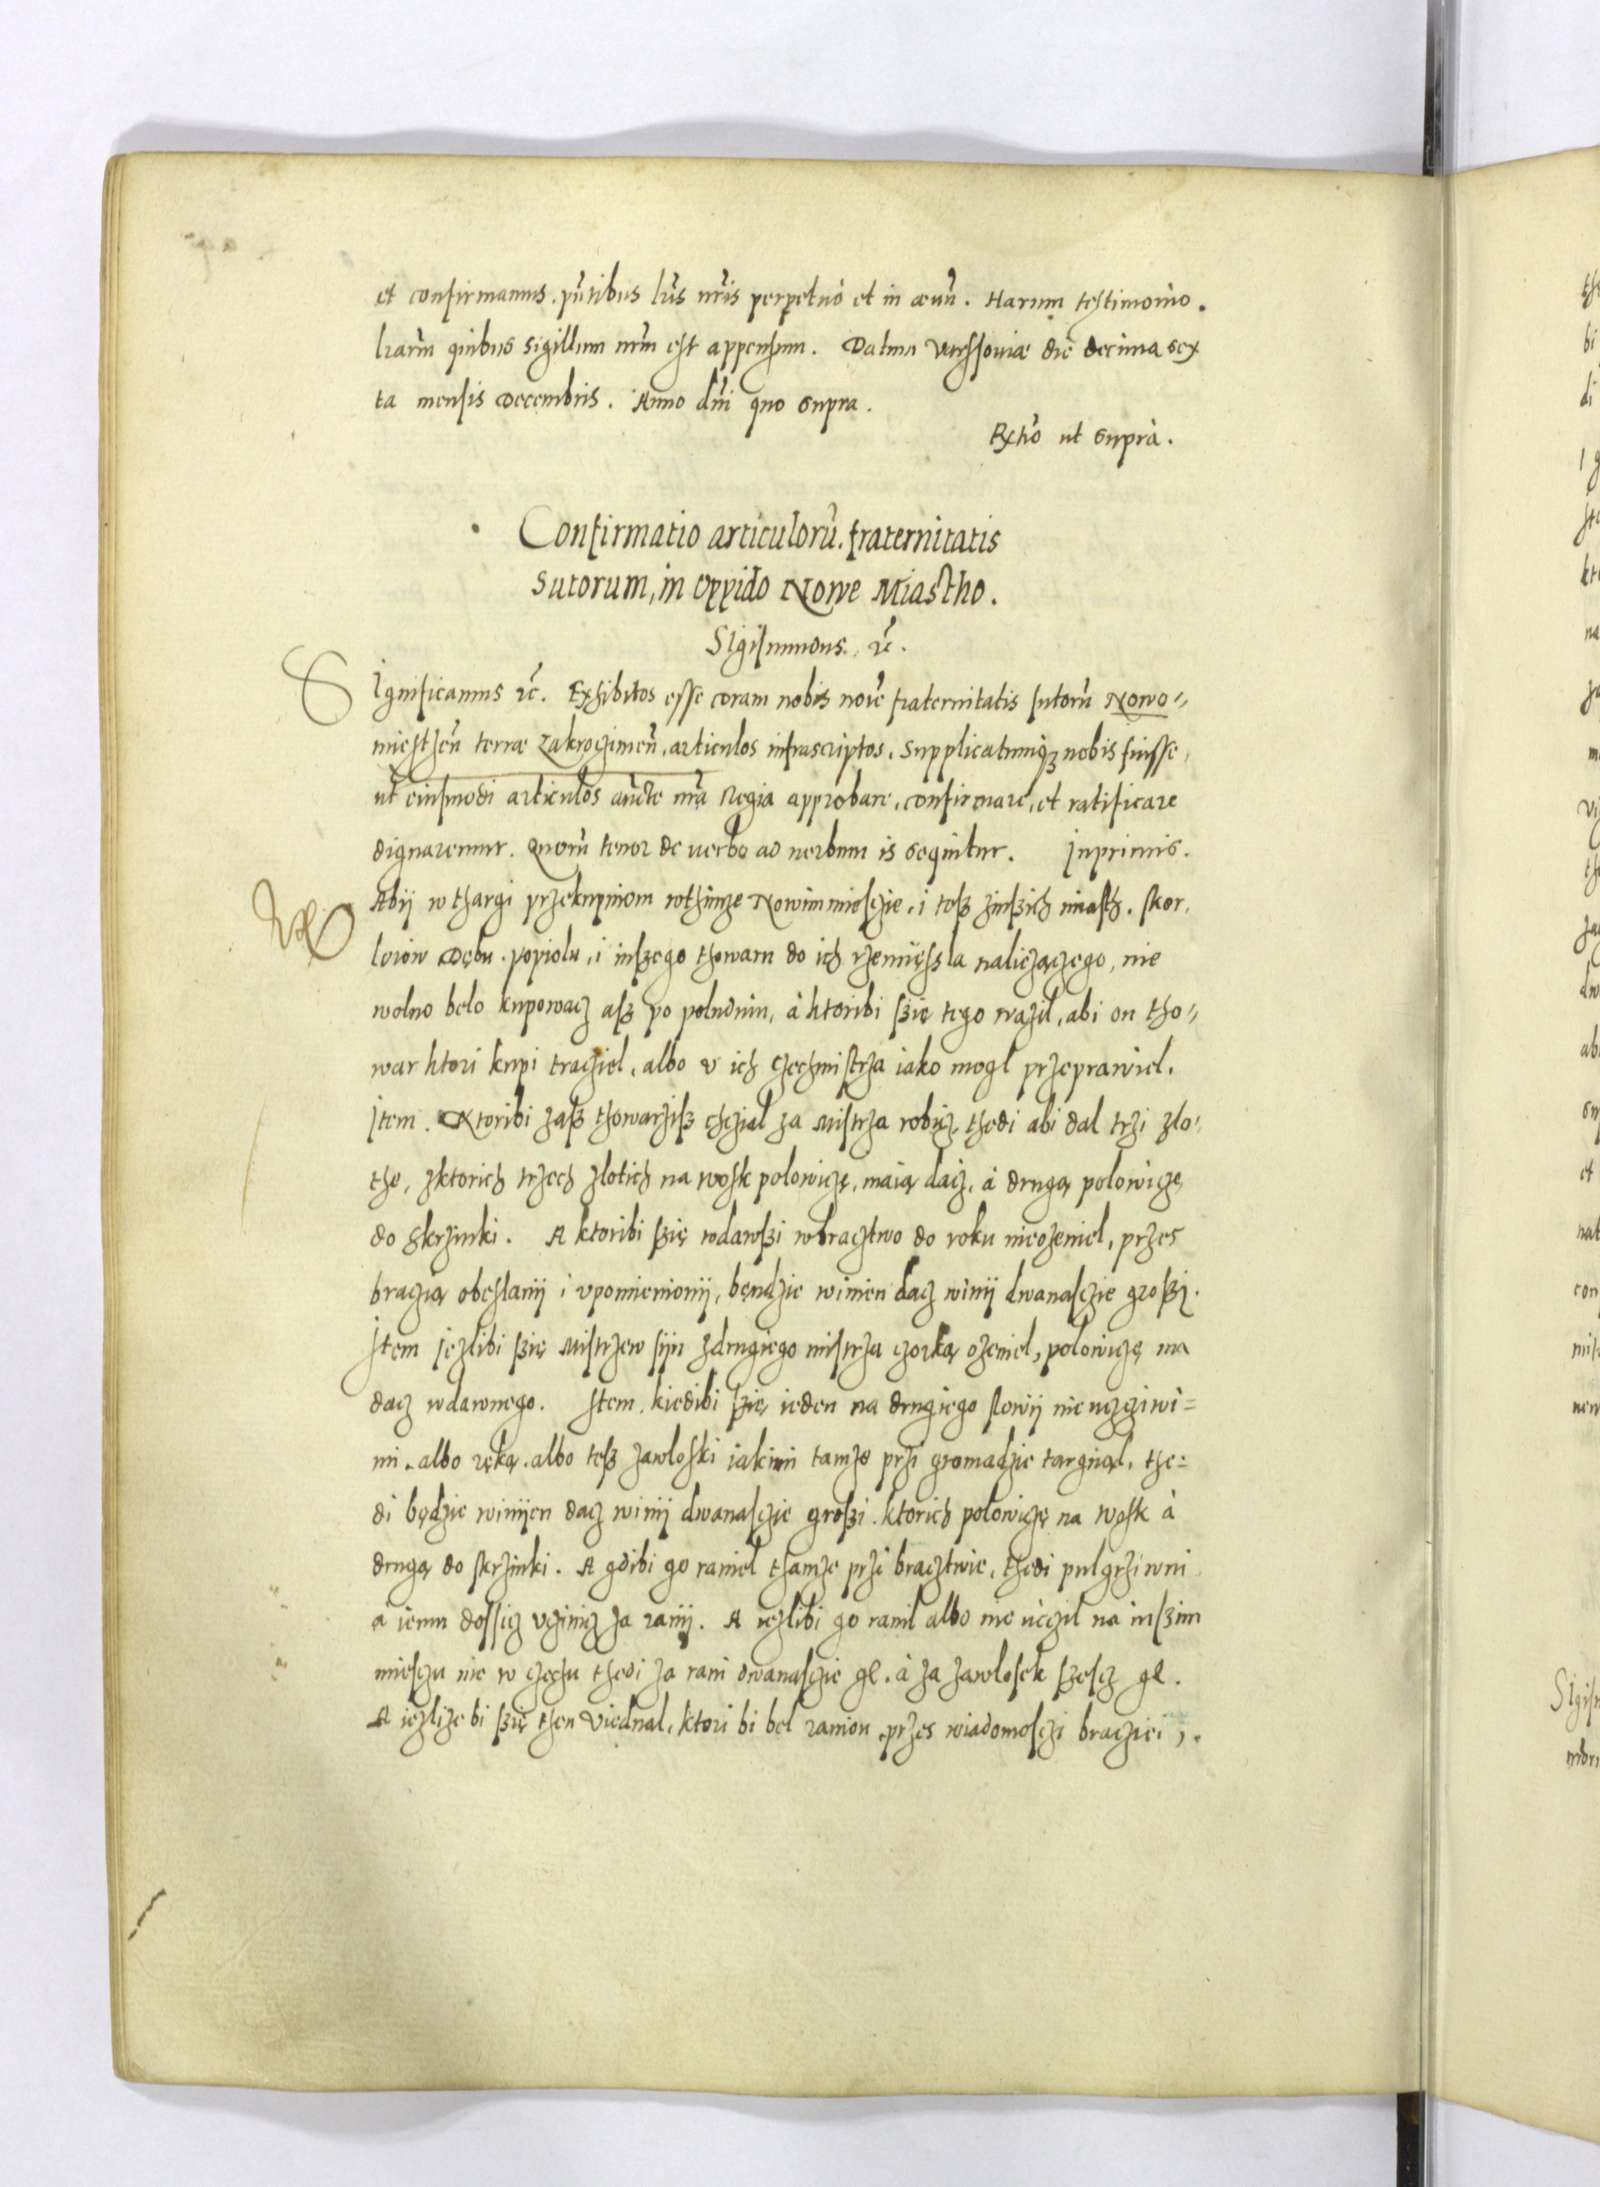 et confirmamus. pñtibus lr̃is nr̃is perpetuò et in æuũ. Harum testimonio.
lrarũ quibus sigillum nrũm est appensum. Datum Varssouiæ die decima sex
ta mensis Decembris. Anno dñi quo supra.
ut suprà.
Confirmatio articulorũ. fraternitatis
sutorum, in oppido Nowe Miastho.
Sigismundus. ꝛc̃.
SIgnificamus ꝛc̃. Exhibitos esse coram nobis noĩe fraternitatis sutorũ Nowo〃
miesthẽn terræ Zakroczimeñ. articulos infrascriptos. Supplicatumqꝫ nobis fuisse,
ut eiusmodi articulos aũcte nrã Regia approbare, confirmare, et ratificare
dignaremur. Quorũ tenor de uerbo ad uerbum is sequitur. Inprimis.
Abij w thargi przekupniom wthimze Nowim miesczie. i tesz zinszich miasth. skor,
Dębu. popiolu, i inszego thowaru do ich rzemięssla należączego, nie
wolno belo kupowacz asz po poludniu, à ktoribi szię tego ważil, abi on tho〃
war ktori kupi traciel, albo v ich czechmistrza iako mogl przeprawiel.
Item. Ktoribi zasz thowarzisz chczial za Mistrza robicz, thedi abi dal trzi zlo,
the, zktorich trzech zlotich na wosk polowiczę, maią dacz, à drugą polowiczę
do skrzinki. A ktoribi szię wdawszi wbracztwo do roku nieożeniel, przes
braczią obeslanij i vpomienionij, bęndzie winien dacz winij dwanasczie groszÿ.
Item ieżlibi szię Mistrzew sijn zdrugiego mistrza czorką ożeniel, polowiczę ma
dacz wdawnego. Item. kiedibi szię ieden na drugiego slowij nieuczciwi=
mi. albo ręką. albo tesz zawloski iakimi tamże przi gromadzie targnął, the=
di będzie winijen dacz winij dwanasczie groszi. ktorich polowiczę na wosk à
drugą do skrzinki. A gdibi go raniel thamże przi bracztwie, thedi pulgrziwni
a iemu dossicz vczinicz za ranij. A ieżlibi go ranil albo nie uczcil na inszim
mieszczu nie w czechu thedi za rani dwanasczie gl. à za zawlosek szescz gl.
A ieżliże bi szię then Viednal, ktori bi bel ranion. przes wiadomosczi bracziei,.